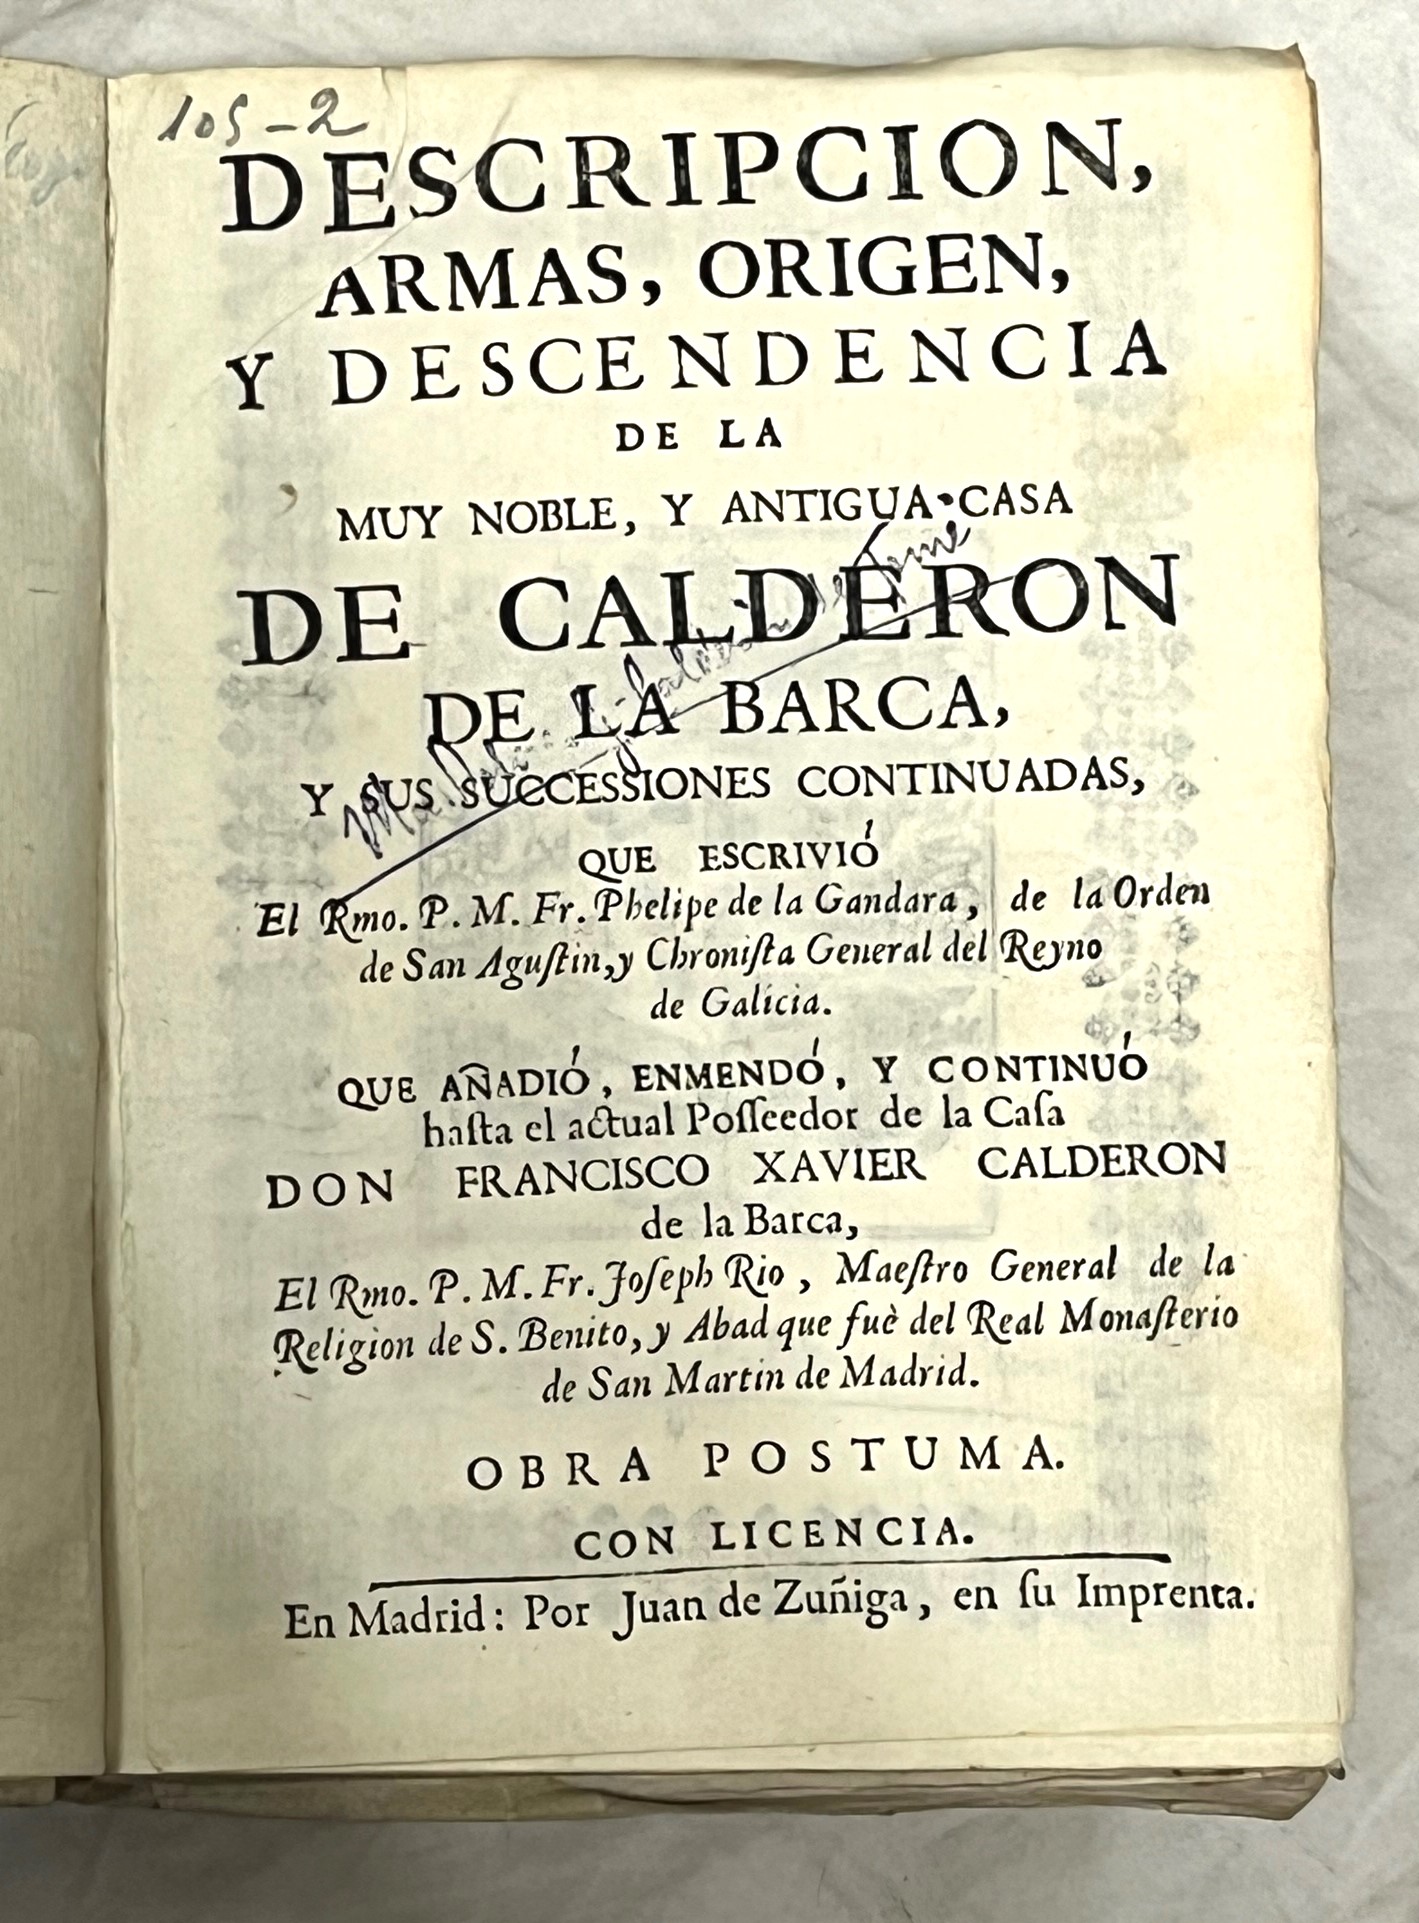 105-2
DESCRIPCION,
ARMAS, ORIGEN,
Y DESCENDENCIA
DE LA
MUY NOBLE, Y ANTIGUA CASA
DE CALDERON
DE LA BARCA,
Y SUS SUCCESSIONES CONTINUADAS,
QUE ESCRIVIÓ
El Rmo. P. M. Fr. Phelipe de la Gandara, de la Orden
de San Aguſtin, y Chroniſta General del Reyno
de Galicia.
QUE AÑADIÓ, ENMENDÓ, Y CONTINUÓ
haſta el actual Poſſeedor de la Caſa
DON FRANCISCO XAVIER CALDERON
de la Barca,
El Rmo. P. M. Fr. Joſeph Rio, Maeſtro General de la
Religion de S. Benito, y Abad que fuè del Real Monaſterio
de San Martin de Madrid.
OBRA POSTUMA.
CON LICENCIA.
En Madrid: Por Juan de Zuñiga, en ſu Imprenta.